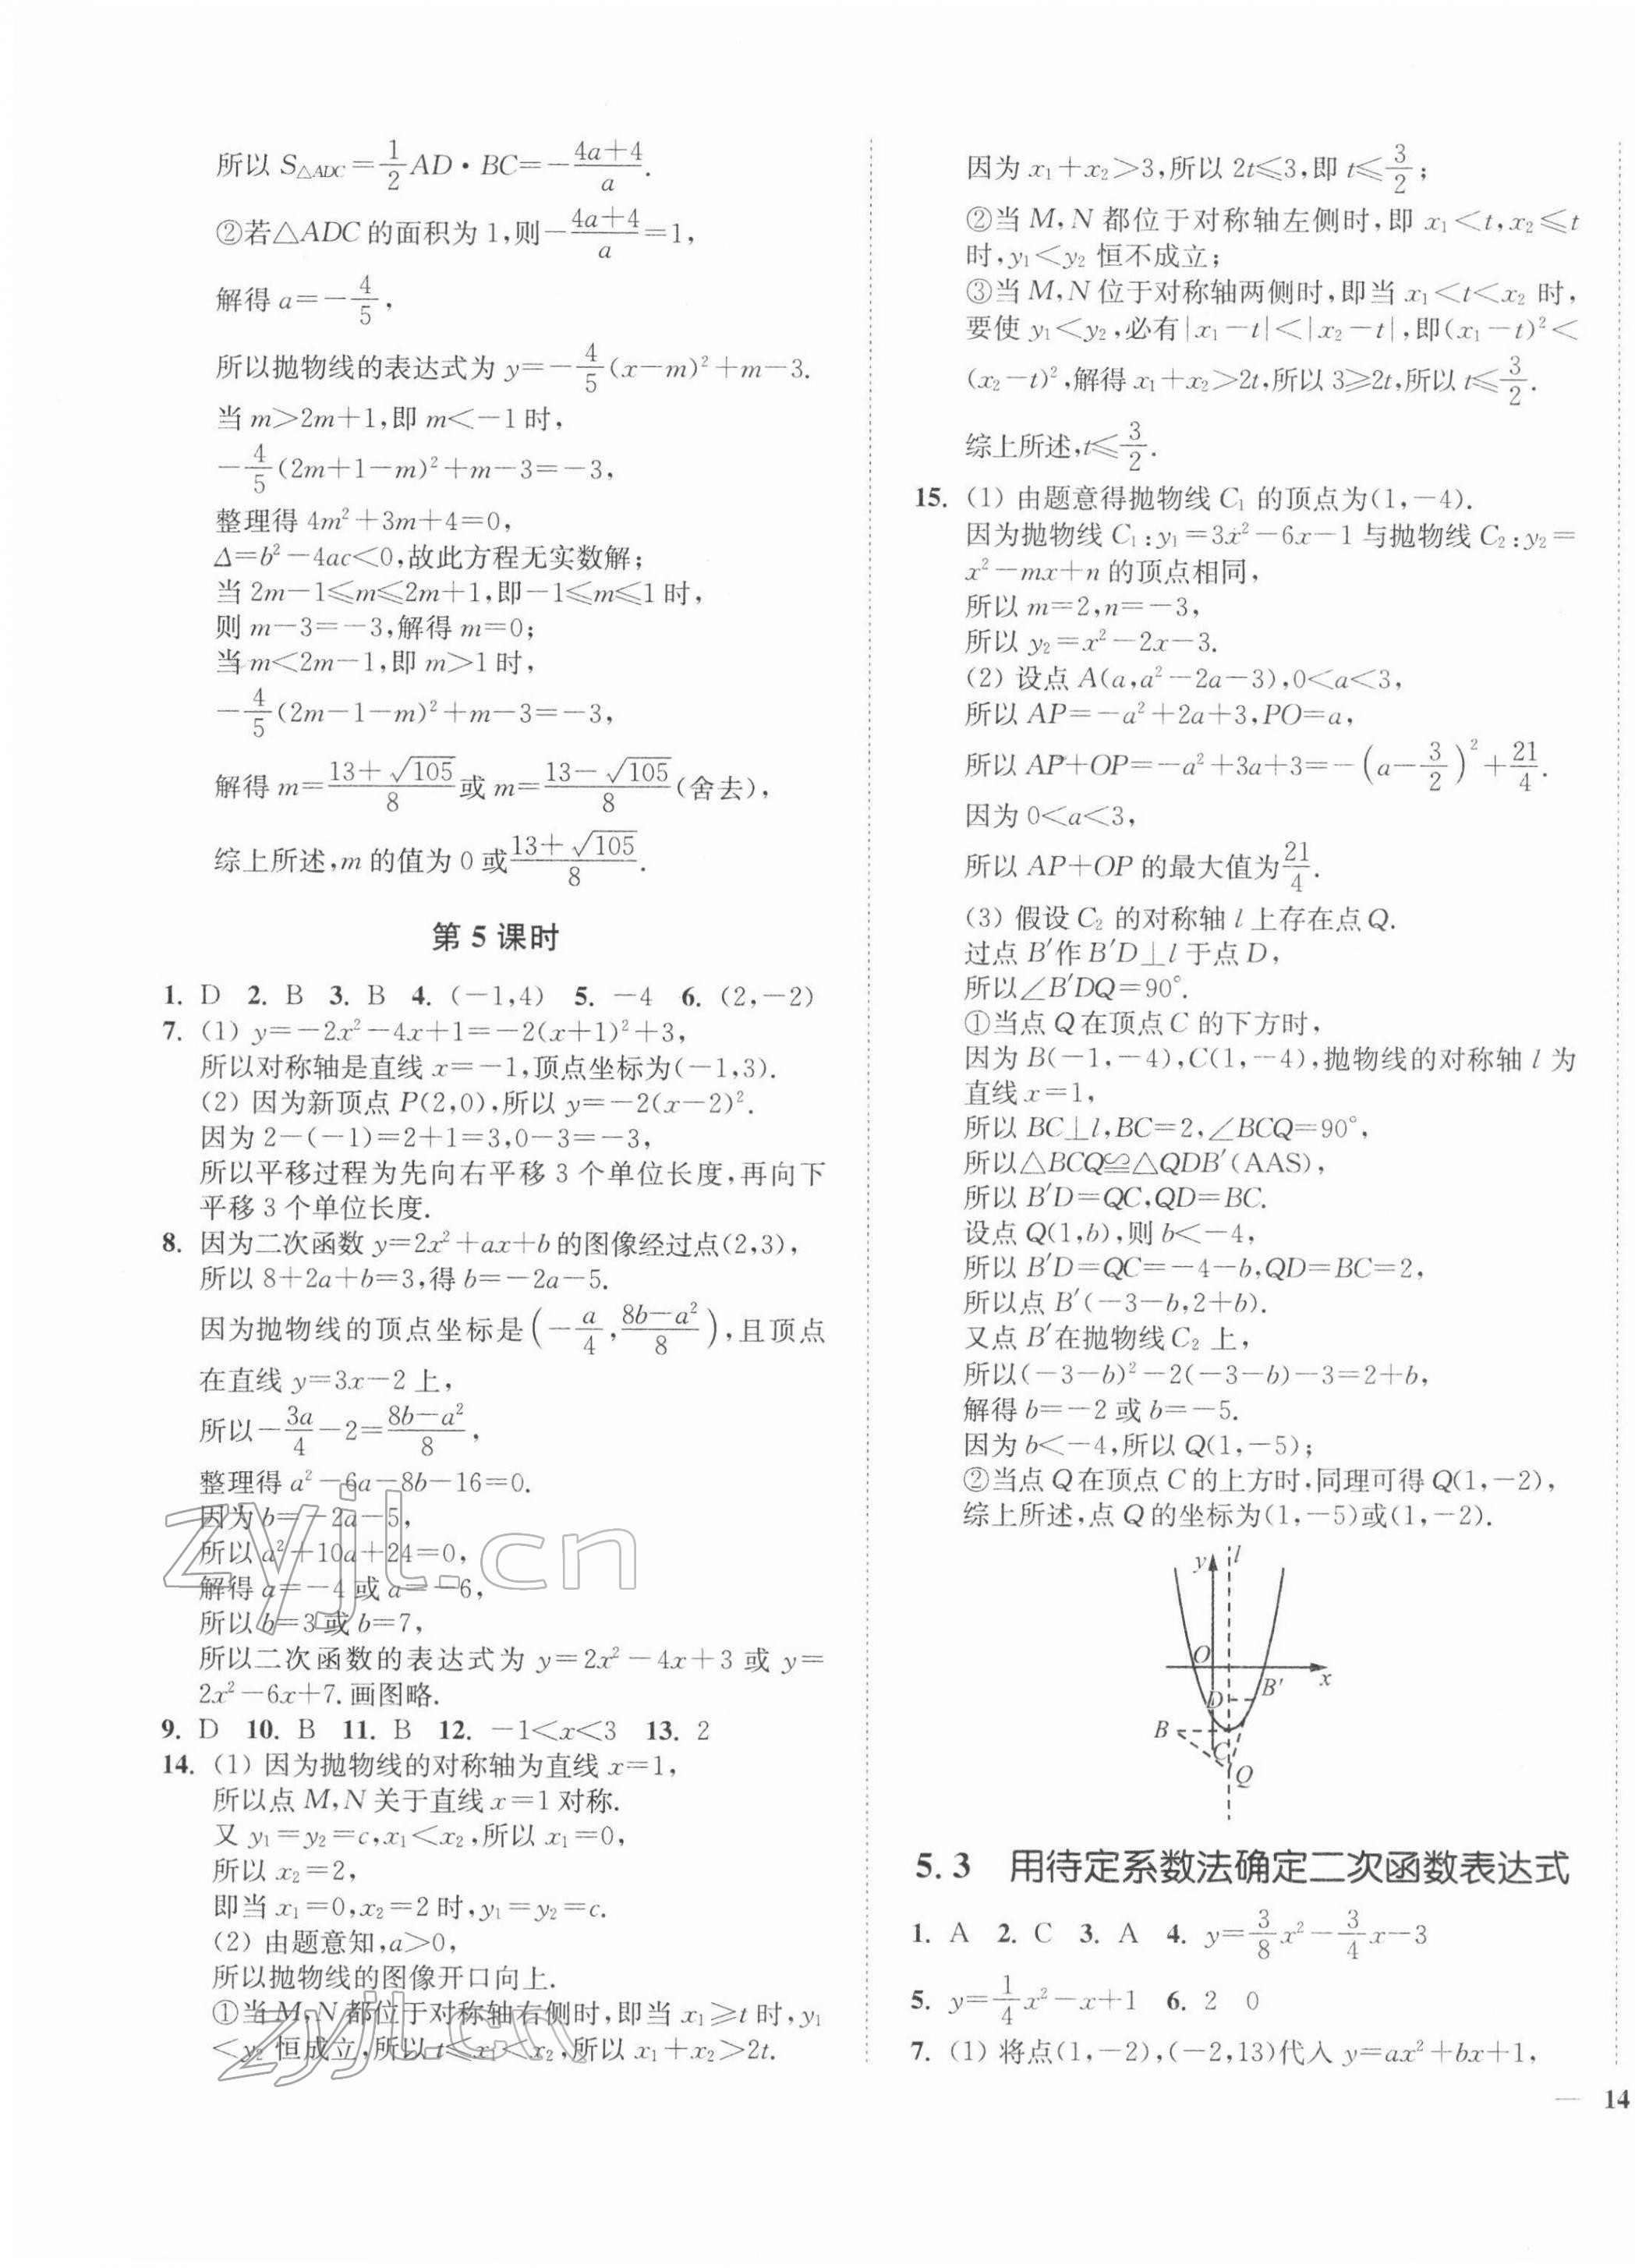 所以 S△ADC=1/2 AD·BC=-(4a+4)/a.
②若△ADC 的面积为 1,则-(4a+4)/a=1,
解得 a=-4/5,
所以抛物线的表达式为 y=-4/5(x-m)²+m-3.
当 m>2m+1,即 m<-1 时,
-4/5(2m+1-m)²+m-3=-3,
整理得 4m²+3m+4=0,
Δ=b²-4ac<0,故此方程无实数解;
当 2m-1≤m≤2m+1,即-1≤m≤1 时,
则 m-3=-3,解得 m=0;
当 m<2m-1,即 m>1 时,
-4/5(2m-1-m)²+m-3=-3,
解得 m=(13+√105)/8 或 m=(13-√105)/8(舍去),
综上所述,m 的值为 0 或(13+√105)/8.
第 5 课时
1. D 2. B 3. B 4. (-1,4) 5. -4 6. (2,-2)
7. (1) y=-2x²-4x+1=-2(x+1)²+3,
所以对称轴是直线 x=-1,顶点坐标为(-1,3).
(2) 因为新顶点 P(2,0),所以 y=-2(x-2)².
因为 2-(-1)=2+1=3,0-3=-3,
所以平移过程为先向右平移 3 个单位长度,再向下
平移 3 个单位长度.
8. 因为二次函数 y=2x²+ax+b 的图像经过点(2,3),
所以 8+2a+b=3,得 b=-2a-5.
因为抛物线的顶点坐标是(-a/4,(8b-a²)/8),且顶点
在直线 y=3x-2 上,
所以-3a/4-2=(8b-a²)/8,
整理得 a²-6a-8b-16=0.
因为 b=-2a-5,
所以 a²+10a+24=0,
解得 a=-4 或 a=-6,
所以 b=3 或 b=7,
所以二次函数的表达式为 y=2x²-4x+3 或 y=
2x²-6x+7. 画图略.
9. D 10. B 11. B 12. -1<x<3 13. 2
14. (1) 因为抛物线的对称轴为直线 x=1,
所以点 M,N 关于直线 x=1 对称.
又 y₁=y₂=c,x₁<x₂,所以 x₁=0,
所以 x₂=2,
即当 x₁=0,x₂=2 时,y₁=y₂=c.
(2) 由题意知,a>0,
所以抛物线的图像开口向上.
①当 M,N 都位于对称轴右侧时,即当 x₁≥t 时,y₁
<y₂ 恒成立,所以 t≤x₁<x₂,所以 x₁+x₂>2t.
因为 x₁+x₂>3,所以 2t≤3,即 t≤3/2;
②当 M,N 都位于对称轴左侧时,即 x₁<t,x₂≤t
时,y₁<y₂ 恒不成立;
③当 M,N 位于对称轴两侧时,即当 x₁<t<x₂ 时,
要使 y₁<y₂,必有|x₁-t|<|x₂-t|,即(x₁-t)²<
(x₂-t)²,解得 x₁+x₂>2t,所以 3≥2t,所以 t≤3/2.
综上所述,t≤3/2.
15. (1) 由题意得抛物线 C₁ 的顶点为(1,-4).
因为抛物线 C₁:y₁=3x²-6x-1 与抛物线 C₂:y₂=
x²-mx+n 的顶点相同,
所以 m=2,n=-3,
所以 y₂=x²-2x-3.
(2) 设点 A(a,a²-2a-3),0<a<3,
所以 AP=-a²+2a+3,PO=a,
所以 AP+OP=-a²+3a+3=-(a-3/2)²+21/4.
因为 0<a<3,
所以 AP+OP 的最大值为21/4.
(3) 假设 C₂ 的对称轴 l 上存在点 Q.
过点 B′作 B′D⊥l 于点 D,
所以∠B′DQ=90°.
①当点 Q 在顶点 C 的下方时,
因为 B(-1,-4),C(1,-4),抛物线的对称轴 l 为
直线 x=1,
所以 BC⊥l,BC=2,∠BCQ=90°,
所以△BCQ≌△QDB′(AAS),
所以 B′D=QC,QD=BC.
设点 Q(1,b),则 b<-4,
所以 B′D=QC=-4-b,QD=BC=2,
所以点 B′(-3-b,2+b).
又点 B′在抛物线 C₂ 上,
所以(-3-b)²-2(-3-b)-3=2+b,
解得 b=-2 或 b=-5.
因为 b<-4,所以 Q(1,-5);
②当点 Q 在顶点 C 的上方时,同理可得 Q(1,-2),
综上所述,点 Q 的坐标为(1,-5)或(1,-2).
y l
O
x
D B′
B
C
Q
5.3 用待定系数法确定二次函数表达式
1. A 2. C 3. A 4. y=3/8x²-3/4x-3
5. y=1/4x²-x+1 6. 2 0
7. (1) 将点(1,-2),(-2,13)代入 y=ax²+bx+1,
— 14
zyjl.cn
zyjl.cn